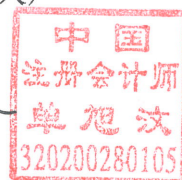 中国
注册会计师
单旭汶
320200280105